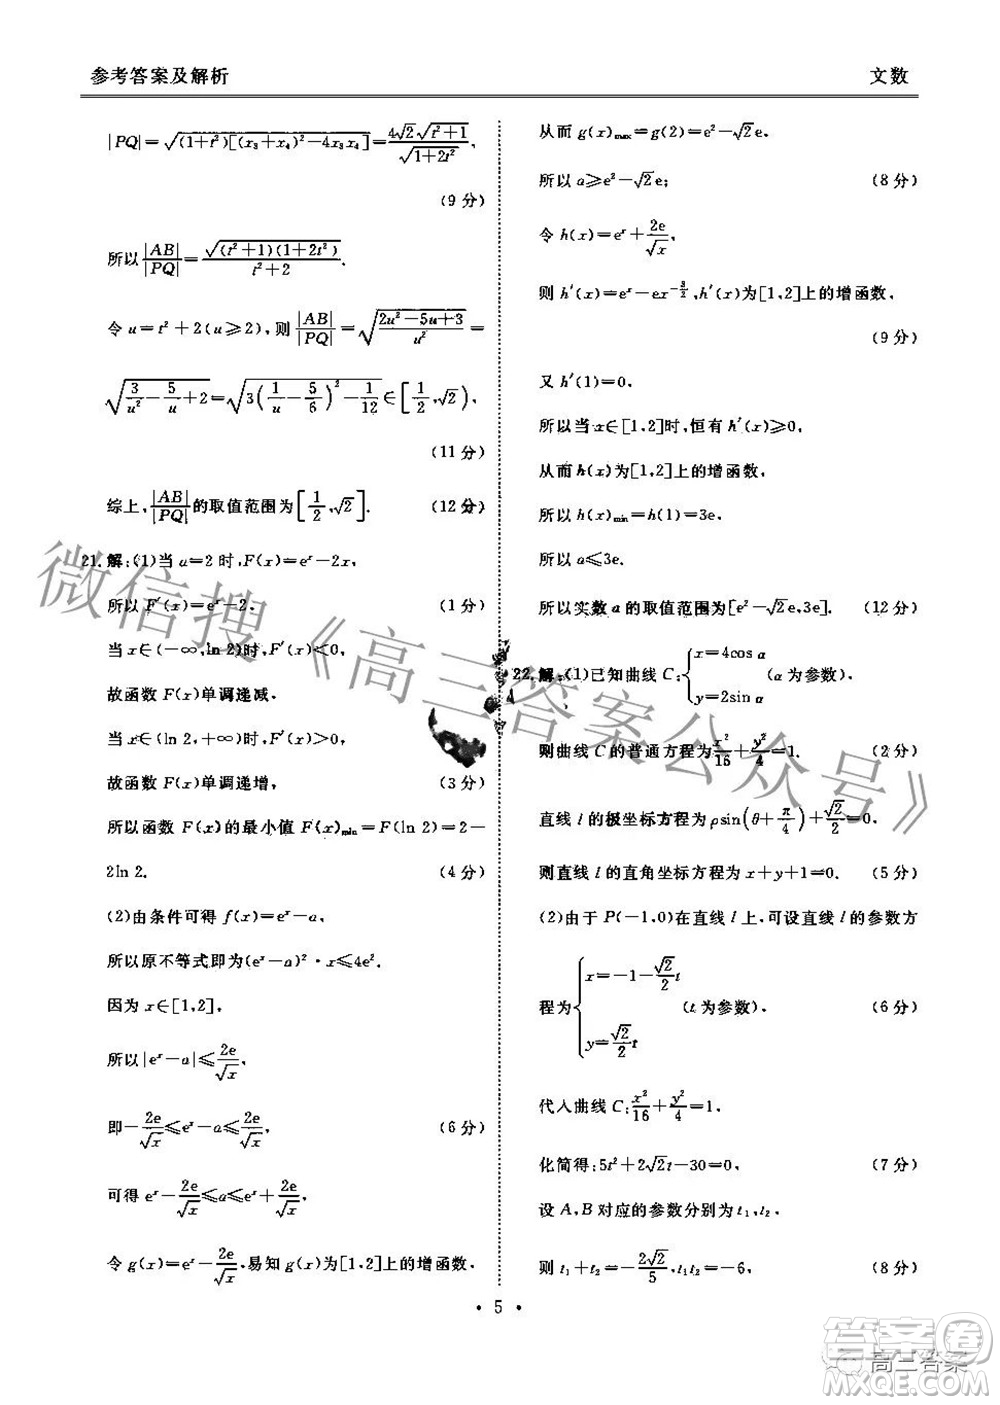 参考答案及解析
文数
|PQ|=√((1+t²)[(x₃+x₄)²-4x₃x₄])=4√2√(t²+1)/√(1+2t²),
(9分)
所以|AB|/|PQ|=√((t²+1)(1+2t²))/(t²+2).
令u=t²+2(u≥2),则|AB|/|PQ|=√((2u²-5u+3)/u²)=
√(3/u²-5/u+2)=√(3(1/u-5/6)²-1/12)∈[1/2,√2),
(11分)
综上,|AB|/|PQ|的取值范围为[1/2,√2]. (12分)
21.解:(1)当a=2时,F(x)=eˣ-2x,
所以F′(x)=eˣ-2. (1分)
当x∈(-∞,ln 2)时,F′(x)<0,
故函数F(x)单调递减.
当x∈(ln 2,+∞)时,F′(x)>0,
故函数F(x)单调递增, (3分)
所以函数F(x)的最小值F(x)min=F(ln 2)=2-
2ln 2. (4分)
(2)由条件可得f(x)=eˣ-a,
所以原不等式即为(eˣ-a)²·x≤4e².
因为x∈[1,2],
所以|eˣ-a|≤2e/√x,
即-2e/√x≤eˣ-a≤2e/√x, (6分)
可得eˣ-2e/√x≤a≤eˣ+2e/√x,
令g(x)=eˣ-2e/√x,易知g(x)为[1,2]上的增函数,
从而g(x)max=g(2)=e²-√2e,
所以a≥e²-√2e; (8分)
令h(x)=eˣ+2e/√x,
则h′(x)=eˣ-ex^(-3/2),h′(x)为[1,2]上的增函数,
(9分)
又h′(1)=0,
所以当x∈[1,2]时,恒有h′(x)≥0,
从而h(x)为[1,2]上的增函数,
所以h(x)min=h(1)=3e,
所以a≤3e.
所以实数a的取值范围为[e²-√2e,3e]. (12分)
22.解:(1)已知曲线C:{x=4cos α
y=2sin α (α为参数),
则曲线C的普通方程为x²/16+y²/4=1. (2分)
直线l的极坐标方程为ρsin(θ+π/4)+√2/2=0,
则直线l的直角坐标方程为x+y+1=0. (5分)
(2)由于P(-1,0)在直线l上,可设直线l的参数方
程为{x=-1-√2/2t
y=√2/2t (t为参数), (6分)
代入曲线C:x²/16+y²/4=1,
化简得:5t²+2√2t-30=0, (7分)
设A,B对应的参数分别为t₁,t₂,
则t₁+t₂=-2√2/5,t₁t₂=-6, (8分)
·5·
微信搜《高三答案公众号》
答案圈
高三答案